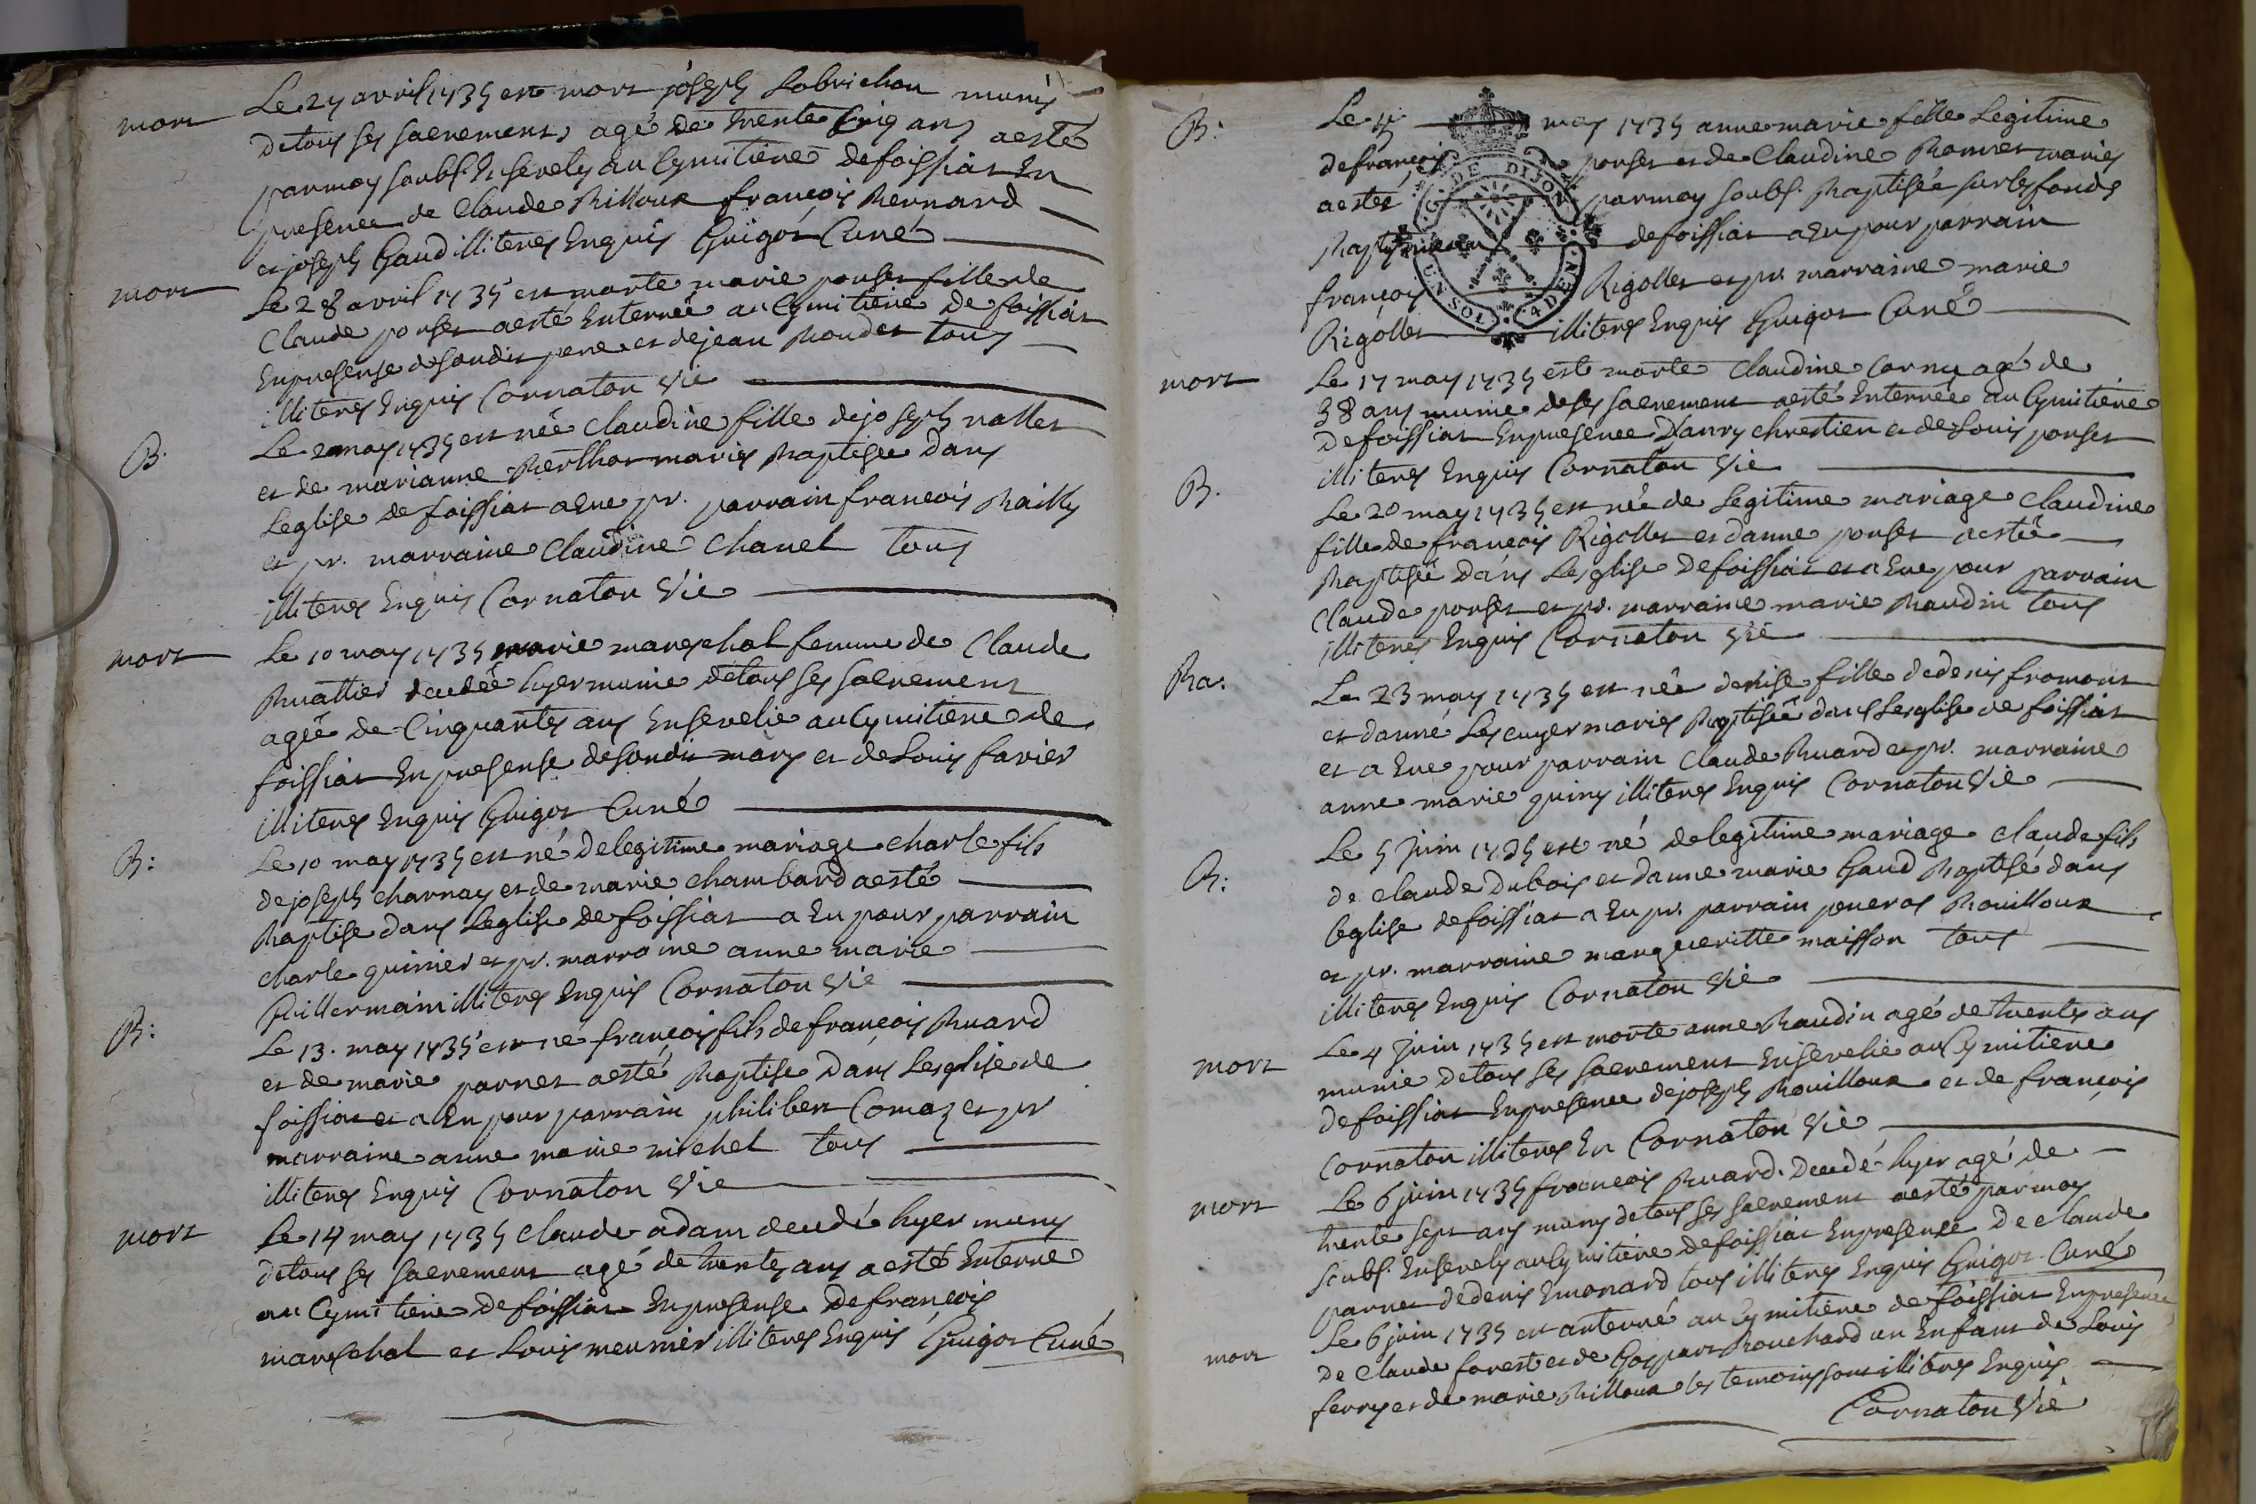 mort Le 27 avril 1735 est mort joseph Lobrichon muny
de tous ses sacremens agé de trente cinq ans a esté
par moy soubs. Ensevely au Cymitiere de foissiat En
presence de Claude Billoux françois Bernard
et joseph Gaud illiteres Enquis Guigot Curé
mort Le 28 avril 1735 est morte marie ponset fille de
Claude ponset a esté Enterrée au Cymitiere de foissiat
En presense de soudit pere et de jean Boudet tous
illiteres Enquis Cornaton vie
B. Le 2 may 1735 est née Claudine fille de joseph nallet
et de marianne Berthot mariés Baptisée dans
Leglise de foissiat a Eue pr. parrain françois Bailly
et pr. marraine Claudine Chanel tous
illiteres Enquis Cornaton Vie
mort Le 10 may 1735 marie mareschal femme de Claude
Buattier decedée hyer munie de tous ses sacremens
agée de Cinquantes ans Ensevelie au Cymitiere de
foissiat En presense de soudit mary et de Louis favier
illiteres Enquis Guigot Curé
B: Le 10 may 1735 est né de legitime mariage Charle fils
de joseph Charnay et de marie Chambard a esté
Baptise dans Leglise de foissiat a Eu pour parrain
Charle quinier et pr. marraine anne marie
Guillermain illiteres Enquis Cornaton Vie
B: Le 13. may 1735 est né françois fils de françois Buard
et de marie parnet a esté Baptise Dans Lesglise de
foissiat et a Eu pour parrain philibert Comaz et pr
marraine anne marie michel tous
illiteres Enquis Cornaton Vie
mort Le 14 may 1735 Claude adam decedé hyer muny
de tous ses sacremens agé de trentes ans a esté Enterré
au Cymitiere de foissiat En presense De françois
mareschal et Louis meunier illiteres Enquis Guigot Curé
B: Le may 1735 anne marie fille Legitime
de françois ponset et de Claudine Bonnet mariés
a estée par moy soubs. Baptisée sur les fonds
Baptismaux de foissiat a Eu pour parrain
françois Rigollet et pr. marraine marie
Rigollet illiteres Enquis Guigot Curé
mort Le 17 may 1735 est morte Claudine Cornu agé de
38 ans munie de ses sacremens a esté Enterrée au Cymitiere
de foissiat En presence D'anry chrestien et de Louis ponset
illiteres Enquis Cornaton Vie
B. Le 20 may 1735 est née de Legitime mariage Claudine
fille de françois Rigollet et d'anne ponset a esté
Baptisée Dans Lesglise de foissiat et a Eue pour parrain
Claude ponset et pr. marraine marie Baudin tous
illiteres Enquis Cornaton Vie
Ba. Le 23 may 1735 est née denise fille de denis fromont
et d'anne Lescuyer mariés Baptisée dans Lesglise de foissiat
et a Eue pour parrain Claude Buard et pr. marraine
anne marie quiny illiteres Enquis Cornaton Vie
B: Le 5 juin 1735 est né de legitime mariage Claude fils
de Claude Dubois et d'anne marie Gaud Baptise dans
leglise de foissiat a Eu pr. parrain Bouilloux
et pr. marraine margueritte maisson tous
illiteres Enquis Cornaton Vie
mort Le 4 juin 1735 est morte anne Baudin agé de trentes ans
munie de tous ses sacremens Ensevelie au Cymitiere
de foissiat En presence de joseph Bouilloux et de françois
Cornaton illiteres En Cornaton Vie
mort Le 6 juin 1735 françois Buard. Decedé hyer agé de
trente sept ans muny de tous ses sacremens a esté par moy
soubs. Ensevely au Cymitiere de foissiat En presence De Claude
parnet de denis Emonard tous illiteres Enquis Guigot Curé
mort Le 6 juin 1735 est anterré au Cymitiere de foissiat En presence
de Claude forest et de Gaspart Bouchard un Enfant de Louis
ferry et de marie Billoux les temoins sont illiteres Enquis
Cornaton Vie
G. DE DIJON
UN SOL 4 DEN.